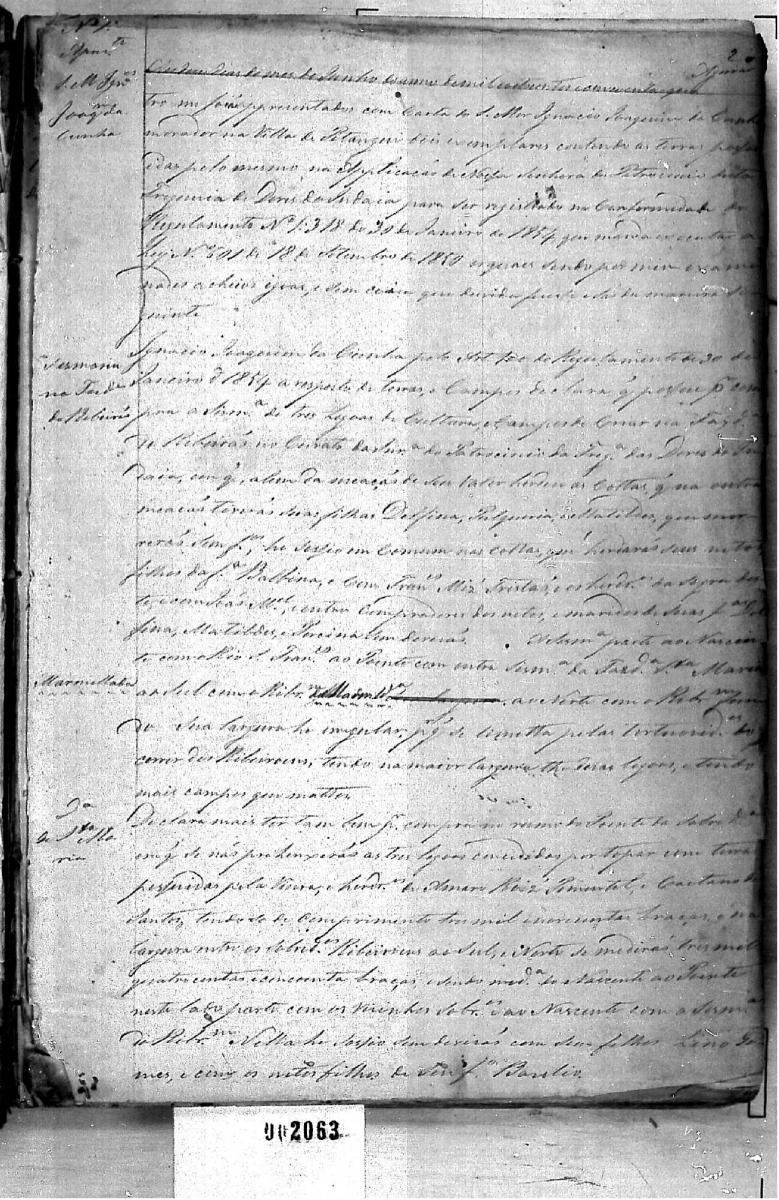 Nº 1º
2
S. M. Ign.co
Joaq.m da
Cunha
Aos dous dias do mes de Junho do anno de mil oito centos e cincoenta e qua
tro me forão appresentados com Carta do S. Mor Ignacio Joaquim da Cunha
morador na Villa de Pitangui dois exemplares contendo as terras possu
idas pelo mesmo na Applicação de Nossa Senhora do Patrocinio desta
Freguesia de Dores do Indaia para ser registados na Conformidade do
Regulamento Nº 1:318 de 30 de Janeiro de 1854 que manda executar a
Ley Nº 601 de 18 de Setembro de 1850 os quaes sendo por mim exami
nados achei os iguaes, e sem cousa que duvida faça e são da maneira se
guinte
Sesmaria
na Fazda
do Ribeirão
Ignacio Joaquim da Cunha pelo Art. 100 do Regulamento de 30 de
Janeiro de 1854 a respeito de terras, e Campos declara q' possue pr com
pra a Sesm.a de tres legoas de Cultura, e Campos de Criar na Fazd.a
do Ribeirão no Curato da Snr.a do Patrocinio da Freg.a das Dores do In
daia, em q', alem da meação de seu valor herdou as Cottas, q' na outra
meação terião suas filhas Delfina, Pulqueria, e Matildes, que mor
rerão sem f.os, he socio em Comum nas cottas, que herdarão seus netos
filhos da f.a Balbina, e Com Fran.co Miz' Tristão, e os herdr.os da sogra des
te, e com João M.el, e outro Compradores dos netos, e maridos de suas f.as Del
fina, Matildes, e Porcina sem divisão. A Sesm.a parte ao Nascen
te com o Rio S. Fran.co ao Poente com outra Sesm.a da Fazd.a S.ta Maria
Marmellada
ao Sul com o Ribr.m da Marmel.da, ao Norte com o Ribr.m Jun
do. Sua largura he irregular, pr q' se lemitta pelas tortuosid.es do
correr dos Ribeiroens, tendo na maior largura the duas legoas, e tendo
mais campos que mattos.
D.a
de S.ta Ma
ria
Declara mais ter tam bem pr compra no rumo do Poente da sobre d.a
em q' se não prehenxerão as tres legoas concedidas por topar com terras
possuidas pela Viuva, e herdr.os de Amaro Roiz' Pimentel, e Caetano dos
Santos, tendo se de comprimento tres mil e novecentas braças, e na
largura entre os sobred.os Ribeiroens ao Sul, e Norte se medirão tres mil
quatro centas e cincoenta braças, e sendo med.a do Nascente ao Poente
neste lado parte com os visinhos sobr.os e ao Nascente com a Sesm.a
do Ribr.m Nella he socio sem divisão com seus filhos Lino Go
mes, e com os netos filhos de seu f.o Bazilio.
002063